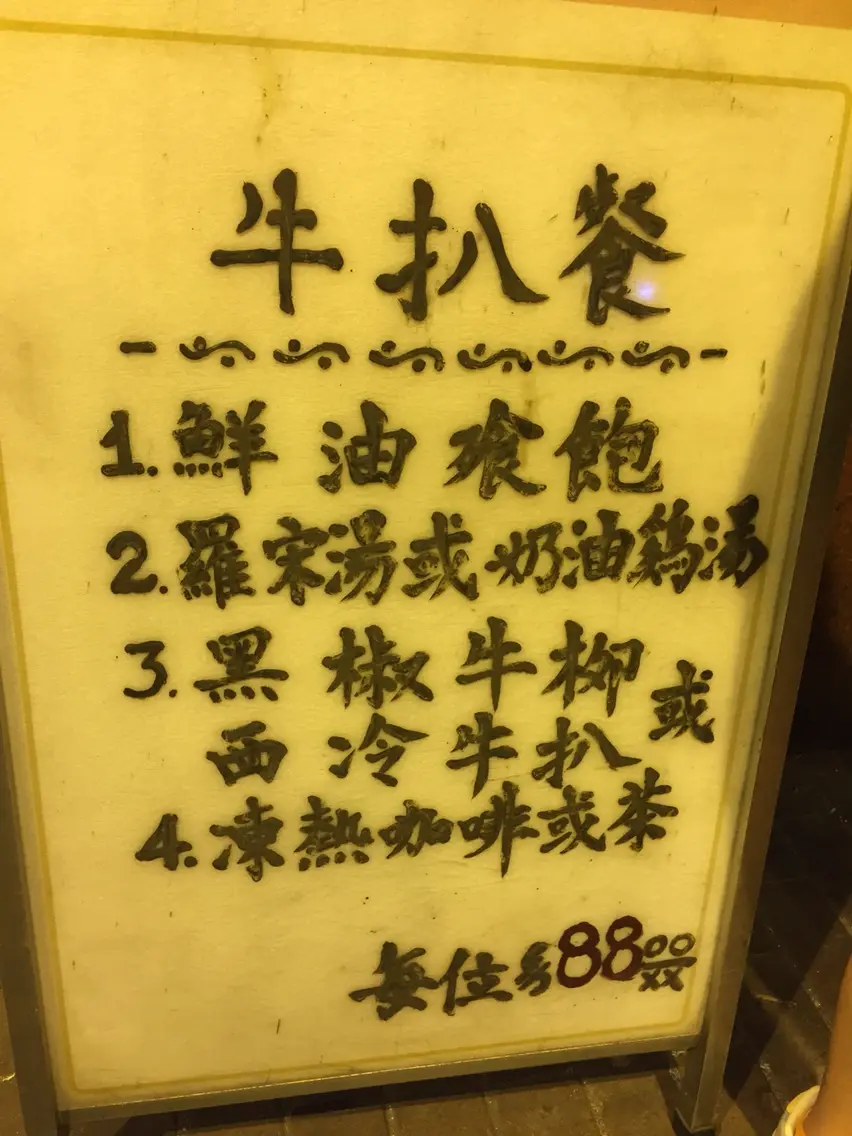 牛扒餐
1. 鮮油飱飽
2. 羅宋湯或奶油鶏湯
3. 黑椒牛柳或
西冷牛扒
4. 凍熱咖啡或茶
每位 88 00/xx